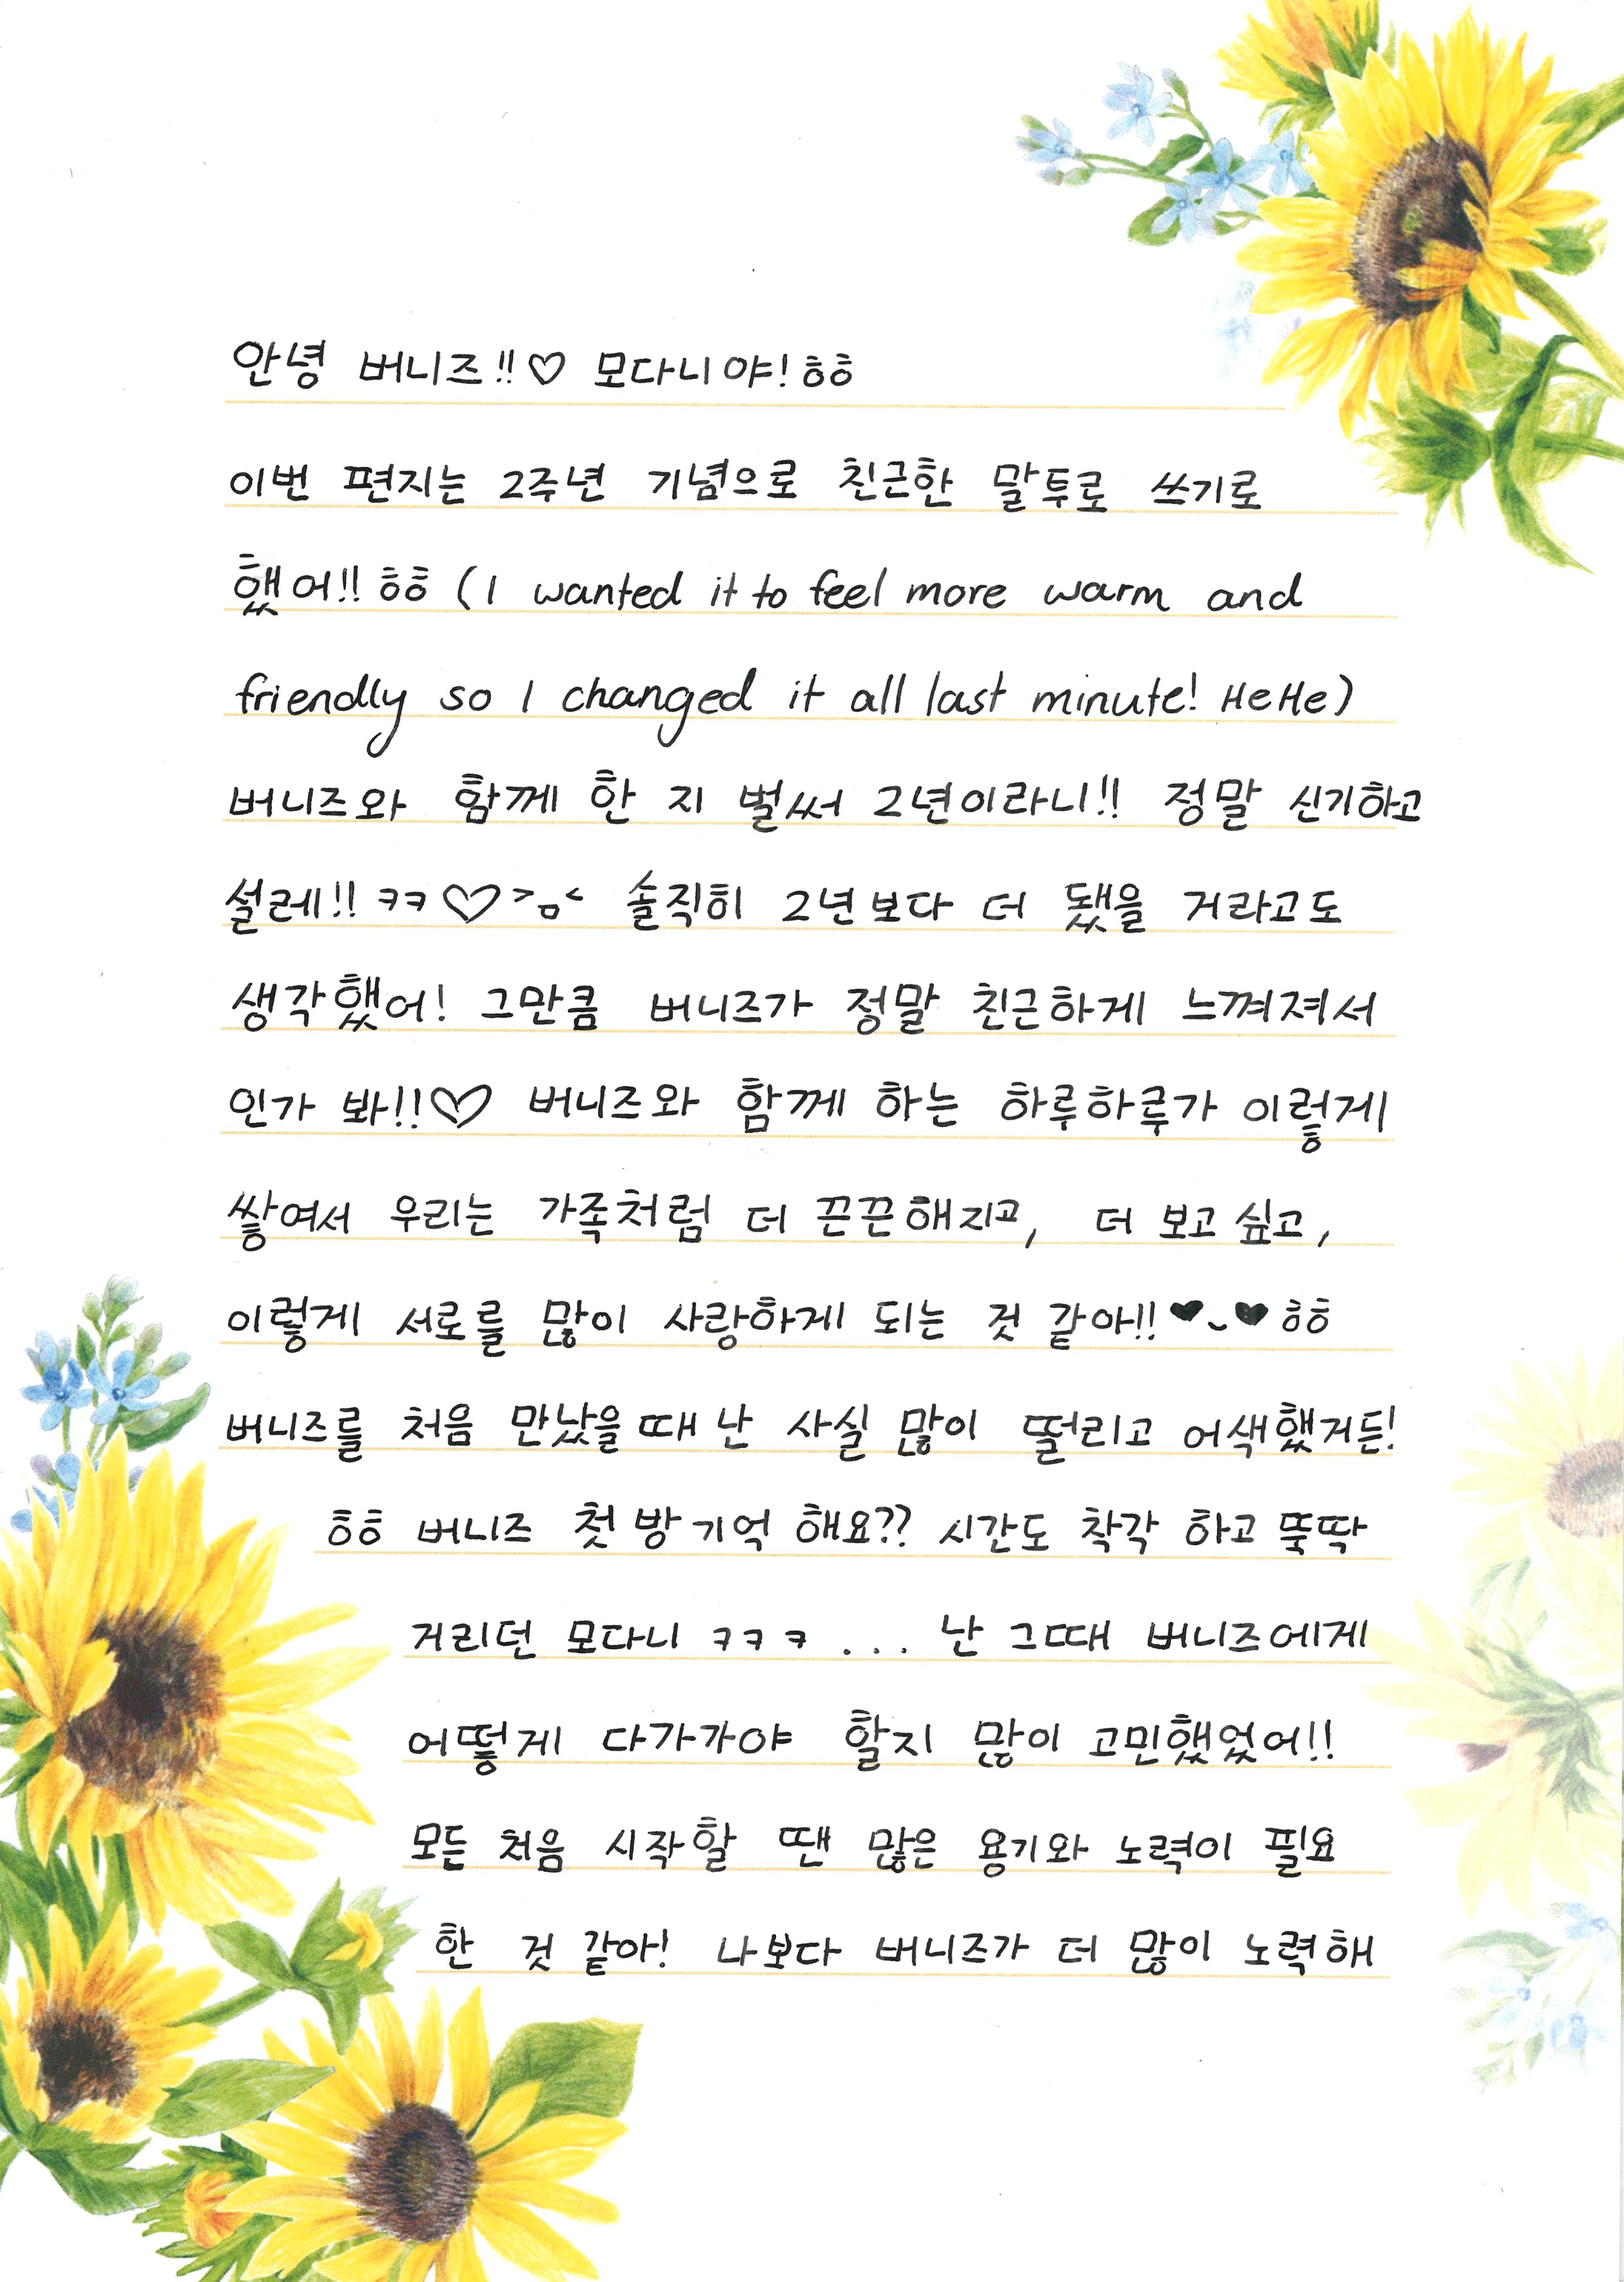 안녕 버니즈!!♡ 모다니야! ㅎㅎ
이번 편지는 2주년 기념으로 친근한 말투로 쓰기로
했어!! ㅎㅎ (I wanted it to feel more warm and
friendly so I changed it all last minute! HeHe)
버니즈와 함께 한 지 벌써 2년이라니!! 정말 신기하고
설레!! ㅋㅋ♡>ㅁ< 솔직히 2년보다 더 됐을 거라고도
생각했어! 그만큼 버니즈가 정말 친근하게 느껴져서
인가 봐!!♡ 버니즈와 함께 하는 하루하루가 이렇게
쌓여서 우리는 가족처럼 더 끈끈해지고, 더 보고 싶고,
이렇게 서로를 많이 사랑하게 되는 것 같아!! ♥~♥ ㅎㅎ
버니즈를 처음 만났을 때 난 사실 많이 떨리고 어색했거든!
ㅎㅎ 버니즈 첫 방 기억 해요?? 시간도 착각 하고 뚝딱
거리던 모다니 ㅋㅋㅋ ... 난 그때 버니즈에게
어떻게 다가가야 할지 많이 고민했었어!!
모든 처음 시작할 땐 많은 용기와 노력이 필요
한 것 같아! 나보다 버니즈가 더 많이 노력해